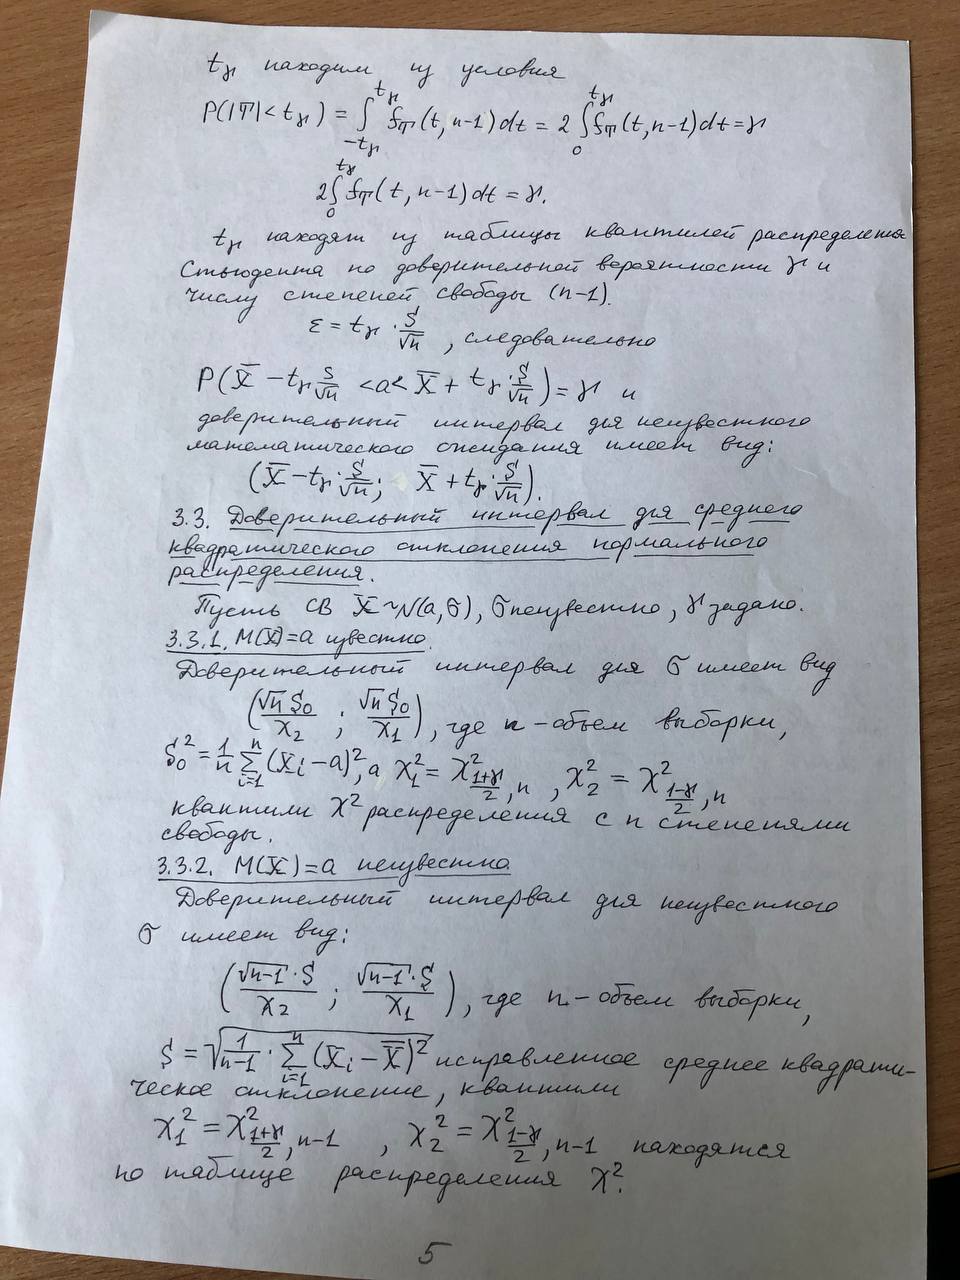 tγ находим из условия
P(|T|<tγ) = ∫_{-tγ}^{tγ} f_T(t, n-1)dt = 2∫_0^{tγ} f_T(t, n-1)dt = γ
2∫_0^{tγ} f_T(t, n-1)dt = γ.
tγ находят из таблицы квантилей распределения
Стьюдента по доверительной вероятности γ и
числу степеней свободы (n-1).
ε = tγ · S/√n , следовательно
P(X̄ - tγ S/√n < a < X̄ + tγ · S/√n) = γ и
доверительный интервал для неизвестного
математического ожидания имеет вид:
(X̄ - tγ · S/√n; X̄ + tγ · S/√n).
3.3. Доверительный интервал для среднего
квадратического отклонения нормального
распределения.
Пусть СВ X ~ N(a, σ), σ неизвестно, γ задано.
3.3.1. M(X)=a известно.
Доверительный интервал для σ имеет вид
(√n S₀/χ₂ ; √n S₀/χ₁), где n - объем выборки,
S₀² = 1/n ∑_{i=1}^{n} (Xᵢ - a)², а χ₁² = χ²_{(1+γ)/2, n} , χ₂² = χ²_{(1-γ)/2, n}
квантили χ² распределения с n степенями
свободы.
3.3.2. M(X)=a неизвестна
Доверительный интервал для неизвестного
σ имеет вид:
(√(n-1) · S/χ₂ ; √(n-1) · S/χ₁), где n - объем выборки,
S = √(1/(n-1) · ∑_{i=1}^{n} (Xᵢ - X̄)²) исправленное среднее квадрати-
ческое отклонение, квантили
χ₁² = χ²_{(1+γ)/2, n-1} , χ₂² = χ²_{(1-γ)/2, n-1} находятся
по таблице распределения χ².
5